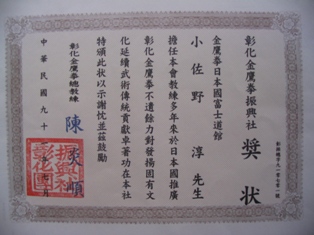 彰化金鷹拳振興社
獎狀
金鷹拳日本國富士道館
小佐野 淳 先生
擔任本會教練多年來於日本國推廣
彰化金鷹拳不遺餘力對發揚固有文
化延續武術傳統貢獻卓著功在本社
特頒此狀以示謝忱並茲鼓勵
彰化金鷹拳總教練
陳
順
中華民國九十
月